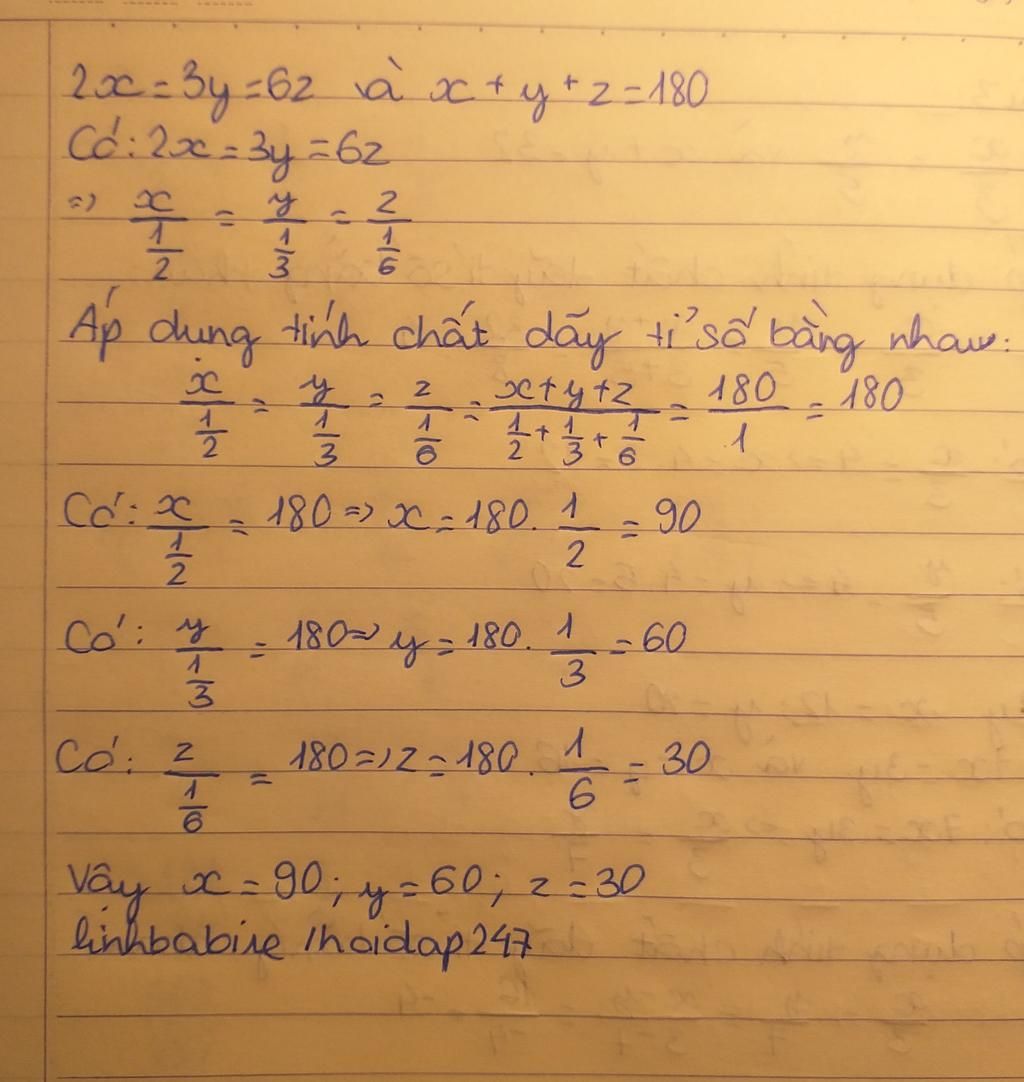 2x = 3y = 6z và x + y + z = 180
Có: 2x = 3y = 6z
=> x/(1/2) = y/(1/3) = z/(1/6)
Áp dung tính chất dãy tỉ số bằng nhau:
x/(1/2) = y/(1/3) = z/(1/6) = (x+y+z)/(1/2 + 1/3 + 1/6) = 180/1 = 180
Có: x/(1/2) = 180 => x = 180 . 1/2 = 90
Có: y/(1/3) = 180 => y = 180 . 1/3 = 60
Có: z/(1/6) = 180 => z = 180 . 1/6 = 30
Vây x = 90 ; y = 60 ; z = 30
linhbabie /hoidap247